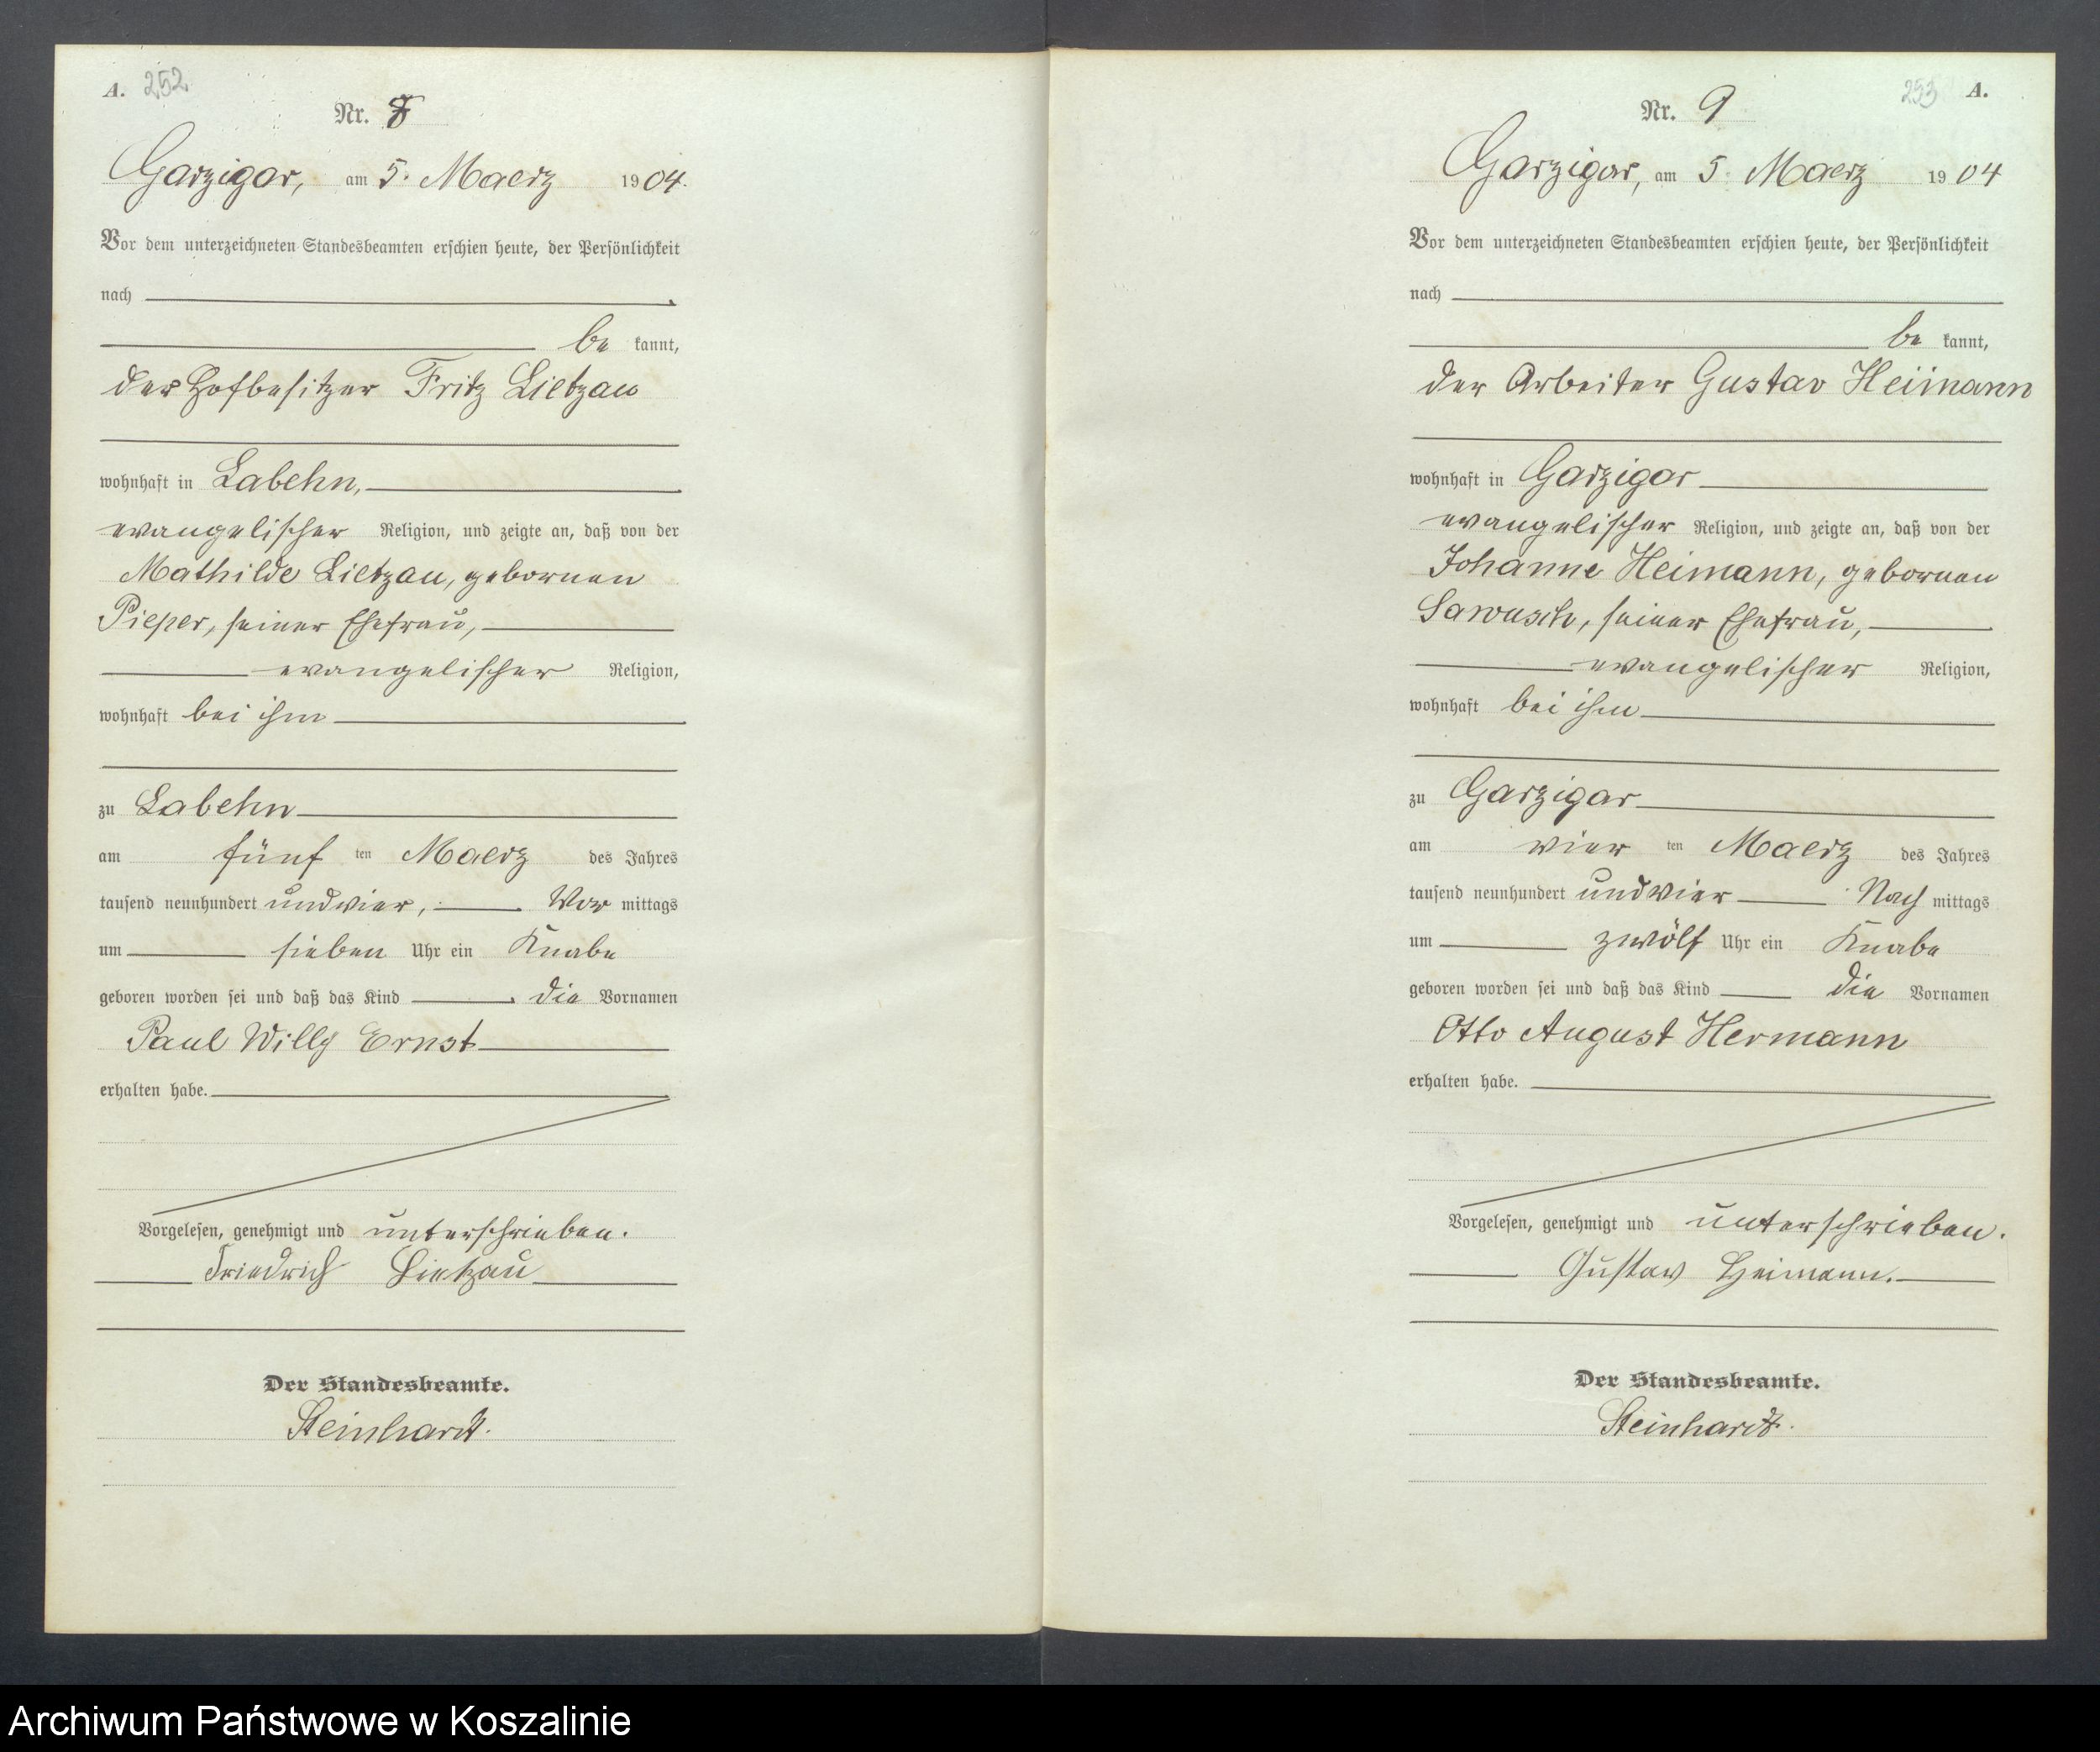 A. 252
Nr. 8
Garzigar, am 5. Maerz 1904.
Vor dem unterzeichneten Standesbeamten erschien heute, der Persönlichkeit
nach
be kannt,
der Hofbesitzer Fritz Lietzau
wohnhaft in Labehn,
evangelischer Religion, und zeigte an, daß von der
Mathilde Lietzau, gebornen
Pieper, seiner Ehefrau,
evangelischer Religion,
wohnhaft bei ihm
zu Labehn
am fünf ten Maerz des Jahres
tausend neunhundert undvier, Vor mittags
um sieben Uhr ein Knabe
geboren worden sei und daß das Kind die Vornamen
Paul Willy Ernst
erhalten habe.
Vorgelesen, genehmigt und unterschrieben.
Friedrich Lietzau
Der Standesbeamte.
Steinhardt.
253 A.
Nr. 9
Garzigar, am 5. Maerz 1904
Vor dem unterzeichneten Standesbeamten erschien heute, der Persönlichkeit
nach
be kannt,
der Arbeiter Gustav Heimann
wohnhaft in Garzigar
evangelischer Religion, und zeigte an, daß von der
Johanne Heimann, gebornen
Sawusch, seiner Ehefrau,
evangelischer Religion,
wohnhaft bei ihm
zu Garzigar
am vier ten Maerz des Jahres
tausend neunhundert undvier Nach mittags
um zwölf Uhr ein Knabe
geboren worden sei und daß das Kind die Vornamen
Otto August Hermann
erhalten habe.
Vorgelesen, genehmigt und unterschrieben.
Gustav Heimann.
Der Standesbeamte.
Steinhardt.
Archiwum Państwowe w Koszalinie